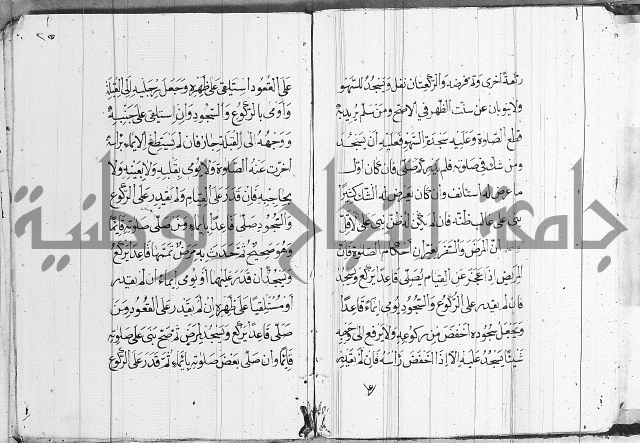 ركعة اخرى وقد تم فرضه والركعتان نفل وتسجد للسهو
ولا ينوبان عن سنت الظهر في الاصح ومن سلم يريد به
قطع الصلوة وعليه سجدة السهو فعليه ان يسجد
ومن شك في صلوته فلم يدر كم صلى فان كان اول
ما عرض له استأنف وان كان يعرض له الشك كثيرا
بنى على غالب ظنه فان لم يكن له ظن بنى على الاقل
ان المرض والسفر يغيران احكام الصلوة فان
المريض اذا عجز عن القيام يصلى قاعدا يركع ويسجد
فان لم يقدر على الركوع والسجود يومى ايماء قاعدا
ويجعل سجوده اخفض من ركوعه ولا يرفع الى وجهه
شيئا يسجد عليه الا اذا اخفض رأسه فان لم يقدر
على القعود استلقى على ظهره وجعل رجليه الى القبلة
واومى بالركوع والسجود وان استلقى على جنبه
ووجهه الى القبلة جاز فان لم يستطع الايماء برأسه
اخرت عنه الصلوة ولا يومى بقلبه ولا بعينه ولا
بحاجبيه فان قدر على القيام ولم يقدر على الركوع
والسجود صلى قاعدا بايماء ومن صلى صلوته قائما
وهو صحيح ثم حدث به مرض تممها قاعدا يركع
ويسجد ان قدر عليهما او يومى ايماء ان لم يقدر
او مستلقيا على ظهره ان لم يقدر على القعود ومن
صلى قاعدا يركع ويسجد لمرض ثم صح بنى على صلوته
قائما وان صلى بعض صلوته بايماء ثم قدر على الركوع
جامعة النجاح الوطنية